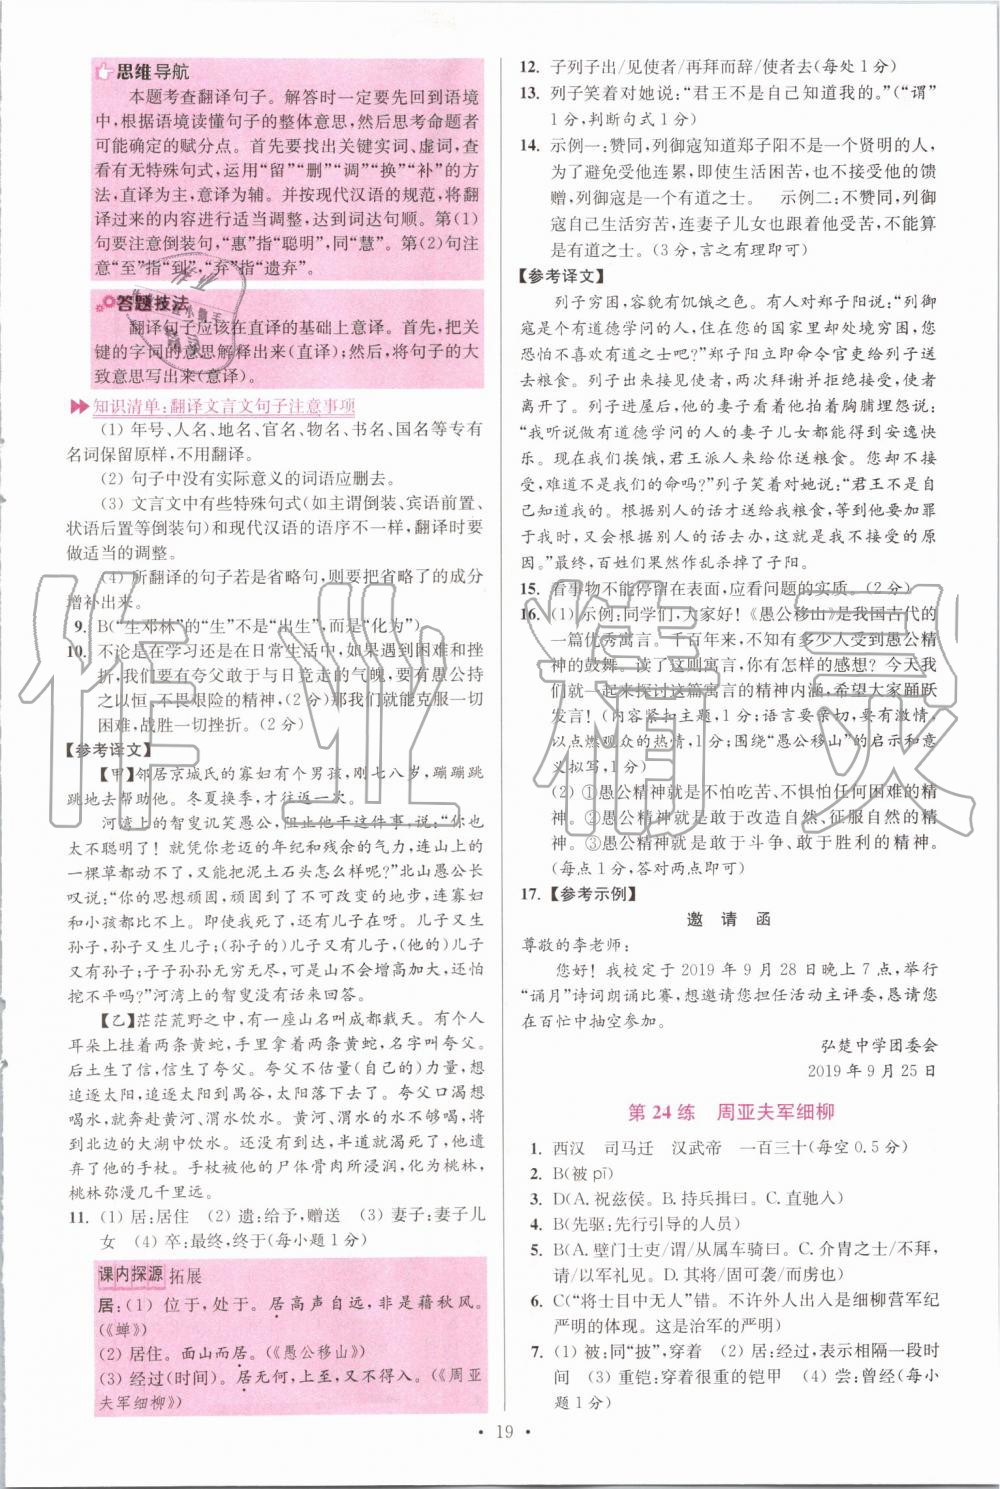 思维导航
本题考查翻译句子。解答时一定要先回到语境
中,根据语境读懂句子的整体意思,然后思考命题者
可能确定的赋分点。首先要找出关键实词、虚词,查
看有无特殊句式,运用“留”“删”“调”“换”“补”的方法,
直译为主,意译为辅。并按现代汉语的规范,将翻
译过来的内容进行适当调整,达到词达句顺。第(1)
句要注意倒装句,“惠”指“聪明”,同“慧”。第(2)句注
意“至”指“到”,“弃”指“遗弃”。
答题技法
翻译句子应该在直译的基础上意译。首先,把关
键的字词的意思解释出来(直译);然后,将句子的大
致意思写出来(意译)。
知识清单:翻译文言文句子注意事项
(1) 年号、人名、地名、官名、物名、书名、国名等专有
名词保留原样,不用翻译。
(2) 句子中没有实际意义的词语应删去。
(3) 文言文中有些特殊句式(如主谓倒装、宾语前置、
状语后置等倒装句)和现代汉语的语序不一样,翻译时要
做适当的调整。
(4) 所翻译的句子若是省略句,则要把省略了的成分
增补出来。
9. B(“生邓林”的“生”不是“出生”,而是“化为”)
10. 不论是在学习还是在日常生活中,如果遇到困难和挫
折,我们要有夸父敢于与日竞走的气魄,要有愚公持
之以恒、不畏艰险的精神,(2分)就能克服一切
困难,战胜一切挫折。(2分)
【参考译文】
【甲】邻居京城氏的寡妇有个男孩,刚七八岁,蹦蹦跳
跳地去帮助他。冬夏换季,才往返一次。
河湾上的智叟讥笑愚公,阻止他干这件事,说:“你也
太不聪明了!就凭你老迈的年纪和残余的气力,连山上的
一棵草都动不了,又能把泥土石头怎么样呢?”北山愚公长
叹说:“你的思想顽固,顽固到了不可改变的地步,连寡妇
和小孩都比不上。即使我死了,还有儿子在呀。儿子又生
孙子,孙子又生儿子;(孙子的)儿子又有(他的)儿子,儿子
又有孙子;子子孙孙无穷无尽,可是山不会增高加大,还怕
挖不平吗?”河湾上的智叟没有话来回答。
【乙】茫茫荒野之中,有一座山名叫成都载天。有个人
耳朵上挂着两条黄蛇,手里握着两条黄蛇,名字叫夸父。
后土生了信,信生了夸父。夸父不估量(自己的)力量,想
追逐太阳,追逐太阳到禺谷,太阳落下去了。夸父口渴想
喝水,就奔赴黄河、渭水饮水。黄河、渭水的水不够,将要
到北边的大湖中饮水。还没有到达,半道就渴死了。他遗
弃了他的手杖。手杖被他的尸体骨肉所浸润,化为桃林,
桃林弥漫几千里远。
11. (1) 居:居住 (2) 遗:给予,赠送 (3) 妻子:妻子儿
女 (4) 卒:最终,终于(每小题1分)
课内探源 拓展
居:(1) 位于,处于。居高声自远,非是藉秋风。
(《蝉》)
(2) 居住。面山而居。(《愚公移山》)
(3) 经过(时间)。居无何,上至,又不得入。(《周亚
夫军细柳》)
12. 子列子出/见使者/再拜而辞/使者去(每处1分)
13. 列子笑着对她说:“君王不是自己知道我的。”(“谓”
1分,判断句式1分)
14. 示例一:赞同,列御寇知道郑子阳不是一个贤明的人,
为了避免受他连累,即使生活困苦,也不接受他的馈
赠,列御寇是一个有道之士。 示例二:不赞同,列御
寇自己生活穷苦,连妻子儿女也跟着他受苦,不能算
是有道之士。(3分,言之有理即可)
【参考译文】
列子穷困,容貌有饥饿之色。有人对郑子阳说:“列御
寇是个有道德学问的人,住在您的国家里却处境穷困,您
恐怕不喜欢有道之士吧?”郑子阳立即命令官吏给列子送
去粮食。列子出来接见使者,两次拜谢并拒绝接受,使者
离开了。列子进屋后,他的妻子看着他拍着胸脯埋怨说:
“我听说做有道德学问的人的妻子儿女都能得到安逸快
乐。现在我们挨饿,君王派人来给你送粮食。您却不接
受,难道不是我们的命吗?”列子笑着对她说:“君王不是自
己知道我的。根据别人的话才送给我粮食,等到他要加罪
于我时,又会根据别人的话去办,这就是我不接受的原
因。”最终,百姓们果然作乱杀掉了子阳。
15. 看事物不能停留在表面,应看问题的实质。(2分)
16. (1) 示例:同学们,大家好!《愚公移山》是我国古代的
一篇优秀寓言。千百年来,不知有多少人受到愚公精
神的鼓舞。读了这则寓言,你有怎样的感想?今天我
们就一起来探讨这篇寓言的精神内涵,希望大家踊跃
发言!(内容紧扣主题,1分;语言要亲切,要有激情,
以点燃观众的热情,1分;围绕“愚公移山”的启示和意
义拟写,1分)
(2) ①愚公精神就是不怕吃苦、不惧怕任何困难的精
神。②愚公精神就是敢于改造自然、征服自然的精
神。③愚公精神就是敢于斗争、敢于胜利的精神。
(每点1分,答对两点即可)
17. 【参考示例】
邀 请 函
尊敬的李老师:
您好!我校定于2019年9月28日晚上7点,举行
“诵月”诗词朗诵比赛,想邀请您担任活动主评委,恳请您
在百忙中抽空参加。
弘楚中学团委会
2019年9月25日
第24练 周亚夫军细柳
1. 西汉 司马迁 汉武帝 一百三十(每空0.5分)
2. B(被pī)
3. D(A.祝兹侯。B.持兵揖曰。C.这驰入。)
4. B(先驱:先行引导的人员)
5. B(A.壁门士吏/谓/从属车骑曰。C.介胄之士/不拜,
请/以军礼见。D.其将/固可袭/而虏也)
6. C(“将士目中无人”错。不许外人出入是细柳营军纪
严明的体现。这是治军的严明)
7. (1) 被:同“披”,穿着 (2) 居:经过,表示相隔一段时
间 (3) 重铠:穿着很重的铠甲 (4) 尝:曾经(每小
题1分)
• 19 •
作业精灵